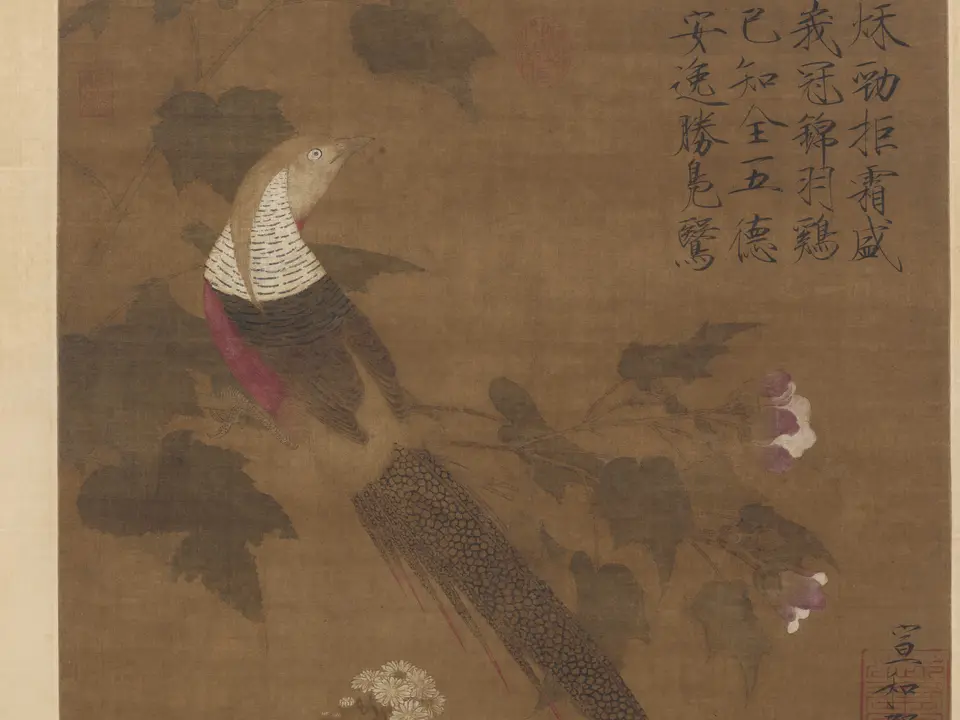 秋勁拒霜盛
峩冠錦羽鷄
已知全五德
安逸勝鳧鷖
宣和